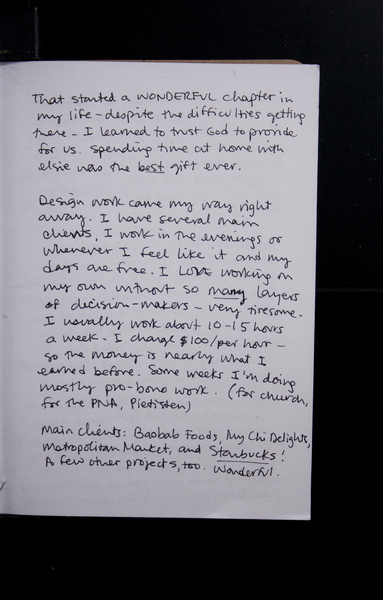 That started a WONDERFUL chapter in
my life - despite the difficulties getting
there - I learned to trust God to provide
for us. Spending time at home with
elsie was the best gift ever.
Design work came my way right
away. I have several main
clients, I work in the evenings or
whenever I feel like it and my
days are free. I Love working on
my own without so many layers
of decision-makers - very tiresome.
I usually work about 10-15 hours
a week. I charge $100/per hour -
so the money is nearly what I
earned before. Some weeks I'm doing
mostly pro-bono work. (for church,
for the PNA, Pietisten)
Main clients: Baobab Foods, My Chi Delights,
Metropolitan Market, and Starbucks!
A few other projects, too. Wonderful.